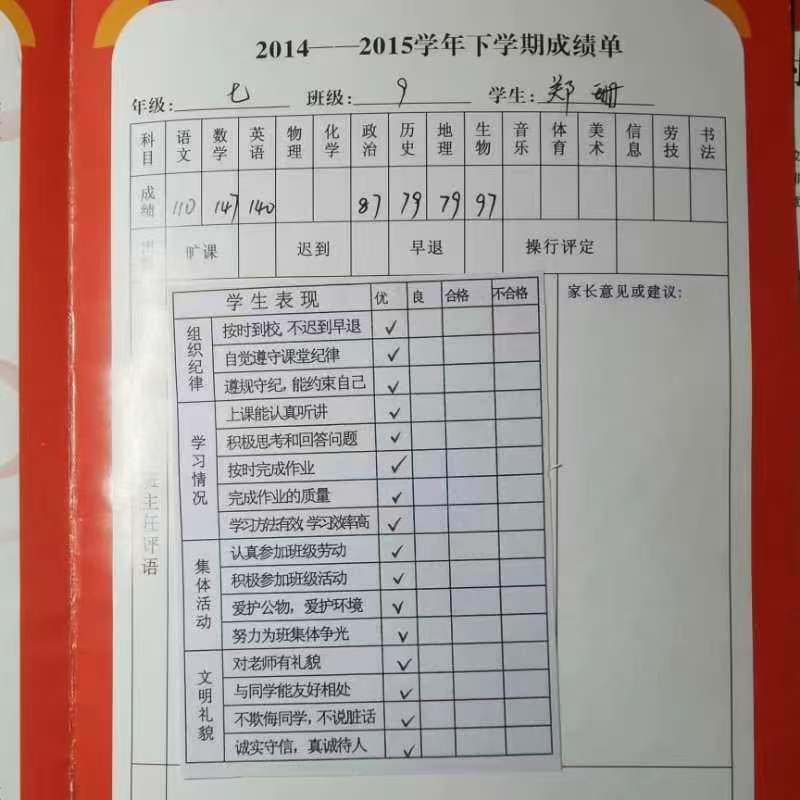 2014——2015学年下学期成绩单
年级: 七 班级: 9 学生: 郑珊
科目 语文 数学 英语 物理 化学 政治 历史 地理 生物 音乐 体育 美术 信息 劳技 书法
成绩 110 147 140 87 79 79 97
旷课 迟到 早退 操行评定
学生表现 优 良 合格 不合格
家长意见或建议:
组织纪律
按时到校,不迟到早退 ✓
自觉遵守课堂纪律 ✓
遵规守纪,能约束自己 ✓
学习情况
上课能认真听讲 ✓
积极思考和回答问题 ✓
按时完成作业 ✓
完成作业的质量 ✓
学习方法有效,学习效率高 ✓
集体活动
认真参加班级劳动 ✓
积极参加班级活动 ✓
爱护公物，爱护环境 ✓
努力为班集体争光 ✓
文明礼貌
对老师有礼貌 ✓
与同学能友好相处 ✓
不欺侮同学，不说脏话 ✓
诚实守信，真诚待人 ✓
主任评语